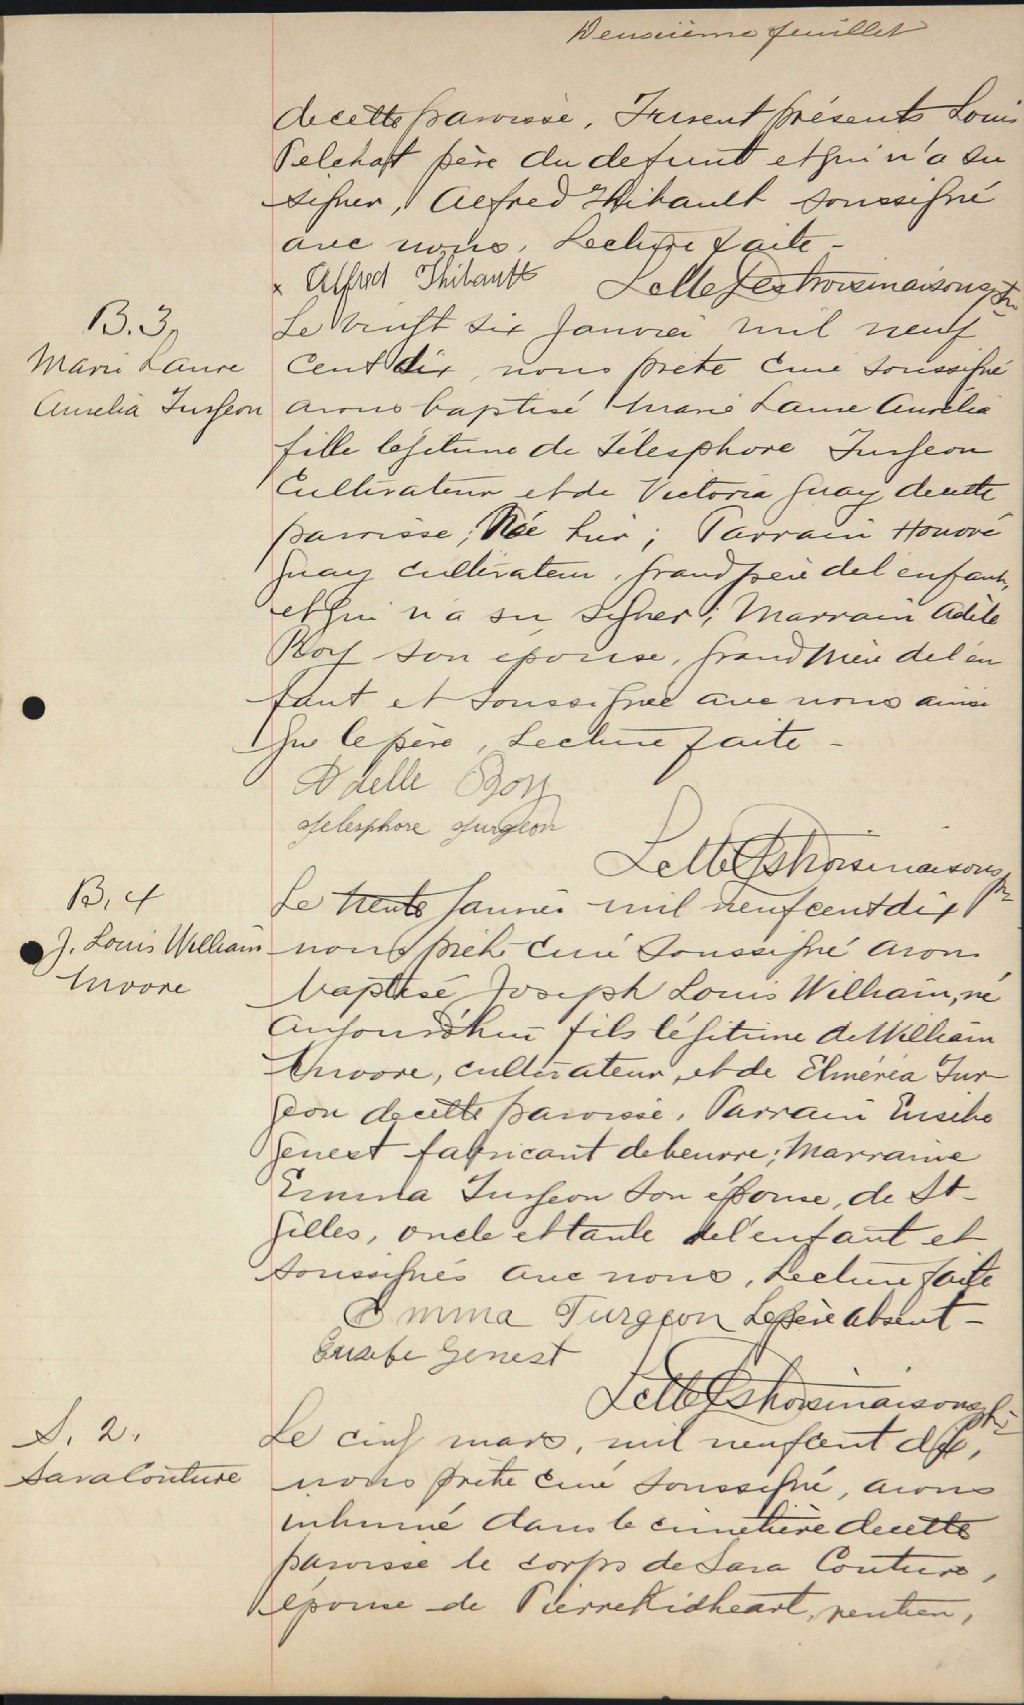 Deuxième feuillet
de cette paroisse. Furent présents Louis
Pelchat père du defunt et qui n'a su
signer, Alfred Thibault soussigné
avec nous. Lecture faite -
x Alfred Thibault
Le vingt six Janvier mil neuf
B.3
Marie Laure
Aurelia Turgeon
cent dix nous prêtre Curé soussigné
avons baptisé Marie Laure Aurélia
fille légitime de Télesphore Turgeon
Cultivateur et de Victoria Guay de cette
paroisse; Née hier; Parrain Honoré
Guay cultivateur, grand père de l'enfant,
et qui n'a su signer; Marraine Adèle
Roy son épouse, grand Mère de l'en
fant et soussignée avec nous ainsi
que le père, Lecture faite -
Adelle Roy
Telesphore Turgeon
B. 4
J. Louis William
Moore
Le trente Janvier mil neuf cent dix
nous prêtre Curé soussigné avons
baptisé Joseph Louis William, né
Aujourd'hui fils légitime de William
Moore, cultivateur, et de Elméréa Tur-
geon de cette paroisse. Parrain Eusèbe
Genest fabricant de beurre; Marraine
Emma Turgeon son épouse, de St-
Gilles, oncle et tante de l'enfant et
soussignés avec nous, Lecture faite
Emma Turgeon Le père absent -
Eusebe Genest
S. 2.
Sara Couture
Le cinq mars, mil neuf cent dix,
nous prêtre curé soussigné, avons
inhumé dans le cimetière de cette
paroisse le corps de Sara Couture,
épouse de Pierre Kidheart, rentier,